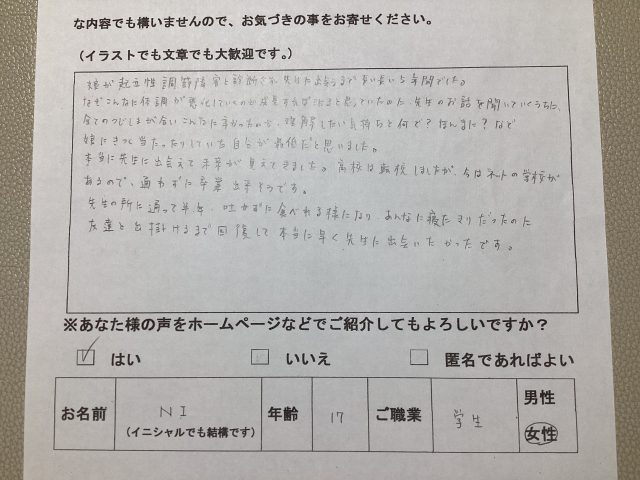 な内容でも構いませんので、お気づきの事をお寄せください。
(イラストでも文章でも大歓迎です。)
娘が起立性調節障害と診断され先生に出会うまで長い長い5年間でした。
なぜこんなに体調が悪化していくのか成長すれば治ると思っていたのに、先生のお話を聞いていくうちに、
全てのつじつまが合いこんなに辛かったのか、理解したい気持ちと何で?なんまに?など
娘にきつく当たったりしていた自分が最低だと思いました。
本当に先生に出会えて未来が見えてきました。高校は転校しましたが、今はネットの学校が
あるので、通わずに卒業出来そうです。
先生の所に通って半年、吐かずに食べれる様になり、あんなに寝たきりだったのに
友達と出掛けるまで回復して本当に早く先生に出会いたかったです。
※あなた様の声をホームページなどでご紹介してもよろしいですか?
はい いいえ 匿名であればよい
お名前 NI (イニシャルでも結構です) 年齢 17 ご職業 学生 男性 女性